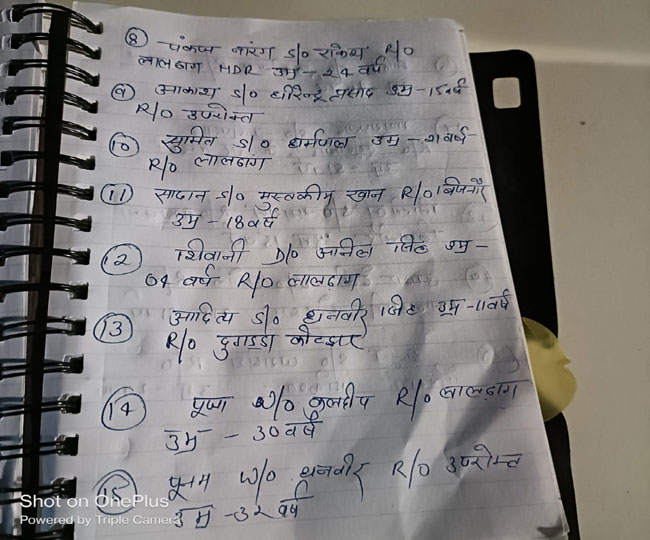 ⑧ पंकज नारंग S/o राकेश R/o
लालढाग HDR उम्र - 24 वर्ष
⑨ आकाश S/o धीरेन्द्र प्रसाद उम्र - 15 वर्ष
R/o उपरोक्त
⑩ सुमित S/o धर्मपाल उम्र - 21 वर्ष
R/o लालढाग
⑪ सादान S/o मुस्तकीम खान R/o बिजनौर
उम्र - 18 वर्ष
⑫ शिवानी D/o अनिल सिंह उम्र -
04 वर्ष R/o लालढाग
⑬ आदित्य S/o धनवीर सिंह उम्र - 11 वर्ष
R/o दुगडडा कोटद्वार
⑭ पूजा W/o कुलदीप R/o लालढाग
उम्र - 30 वर्ष
⑮ पूनम W/o धनवीर R/o उपरोक्त
उम्र - 32 वर्ष
Shot on OnePlus
Powered by Triple Camera